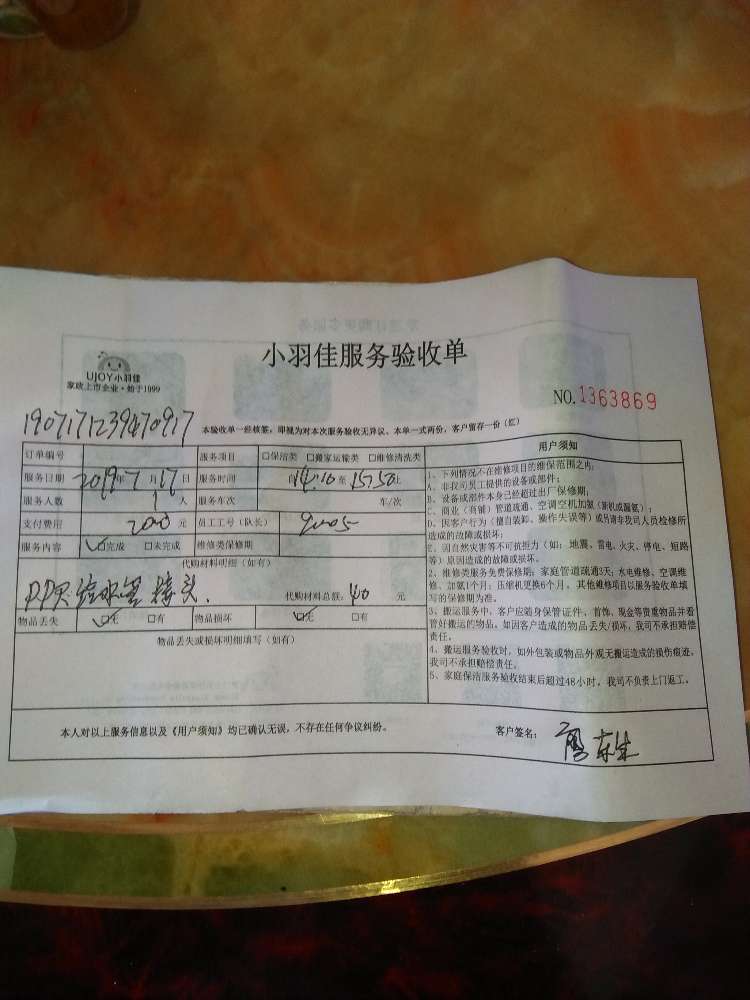 小羽佳服务验收单
UJOY小羽佳
家政上市企业·始于1999
NO. 1363869
1907171239470917
本验收单一经核签，即视为对本次服务验收无异议、本单一式两份，客户留存一份（红）
订单编号 服务项目 □保洁类 □搬家运输类 □维修清洗类
服务日期 2019年7月17日 服务时间 14:10至15:50止
服务人数 1人 服务车次 车/次
支付费用 200元 员工工号（队长） 9005
服务内容 ☑完成 □未完成 维修类保修期
代购材料明细（如有）
PPR给水管接头. 代购材料总额：40 元
物品丢失 ☑无 □有 物品损坏 ☑无 □有
物品丢失或损坏明细填写（如有）
用户须知
1、下列情况不在维修项目的维保范围之内：
A、非我司员工提供的设备或部件；
B、设备或部件本身已经超过出厂保修期；
C、商业（商铺）管道疏通、空调空机加氨（新机或漏氨）；
D、因客户行为（擅自装卸、操作失误等）或另请非我司人员检修所
造成的故障或损坏；
E、因自然灾害等不可抗拒力（如：地震、雷电、火灾、停电、短路
等）原因造成的故障或损坏。
2、维修类服务免费保修期：家庭管道疏通3天；水电维修、空调维
修、加氨1个月；压缩机更换6个月。其他维修项目以服务验收单填
写的保修期为准。
3、搬运服务中，客户应随身保管证件、首饰、现金等贵重物品并看
管好搬运的物品。如因客户造成的物品丢失/损坏，我司不承担赔偿
责任。
4、搬运服务验收时，如外包装或物品外观无搬运造成的损伤痕迹，
我司不承担赔偿责任。
5、家庭保洁服务验收结束后超过48小时，我司不负责上门返工。
本人对以上服务信息以及《用户须知》均已确认无误，不存在任何争议纠纷。
客户签名：